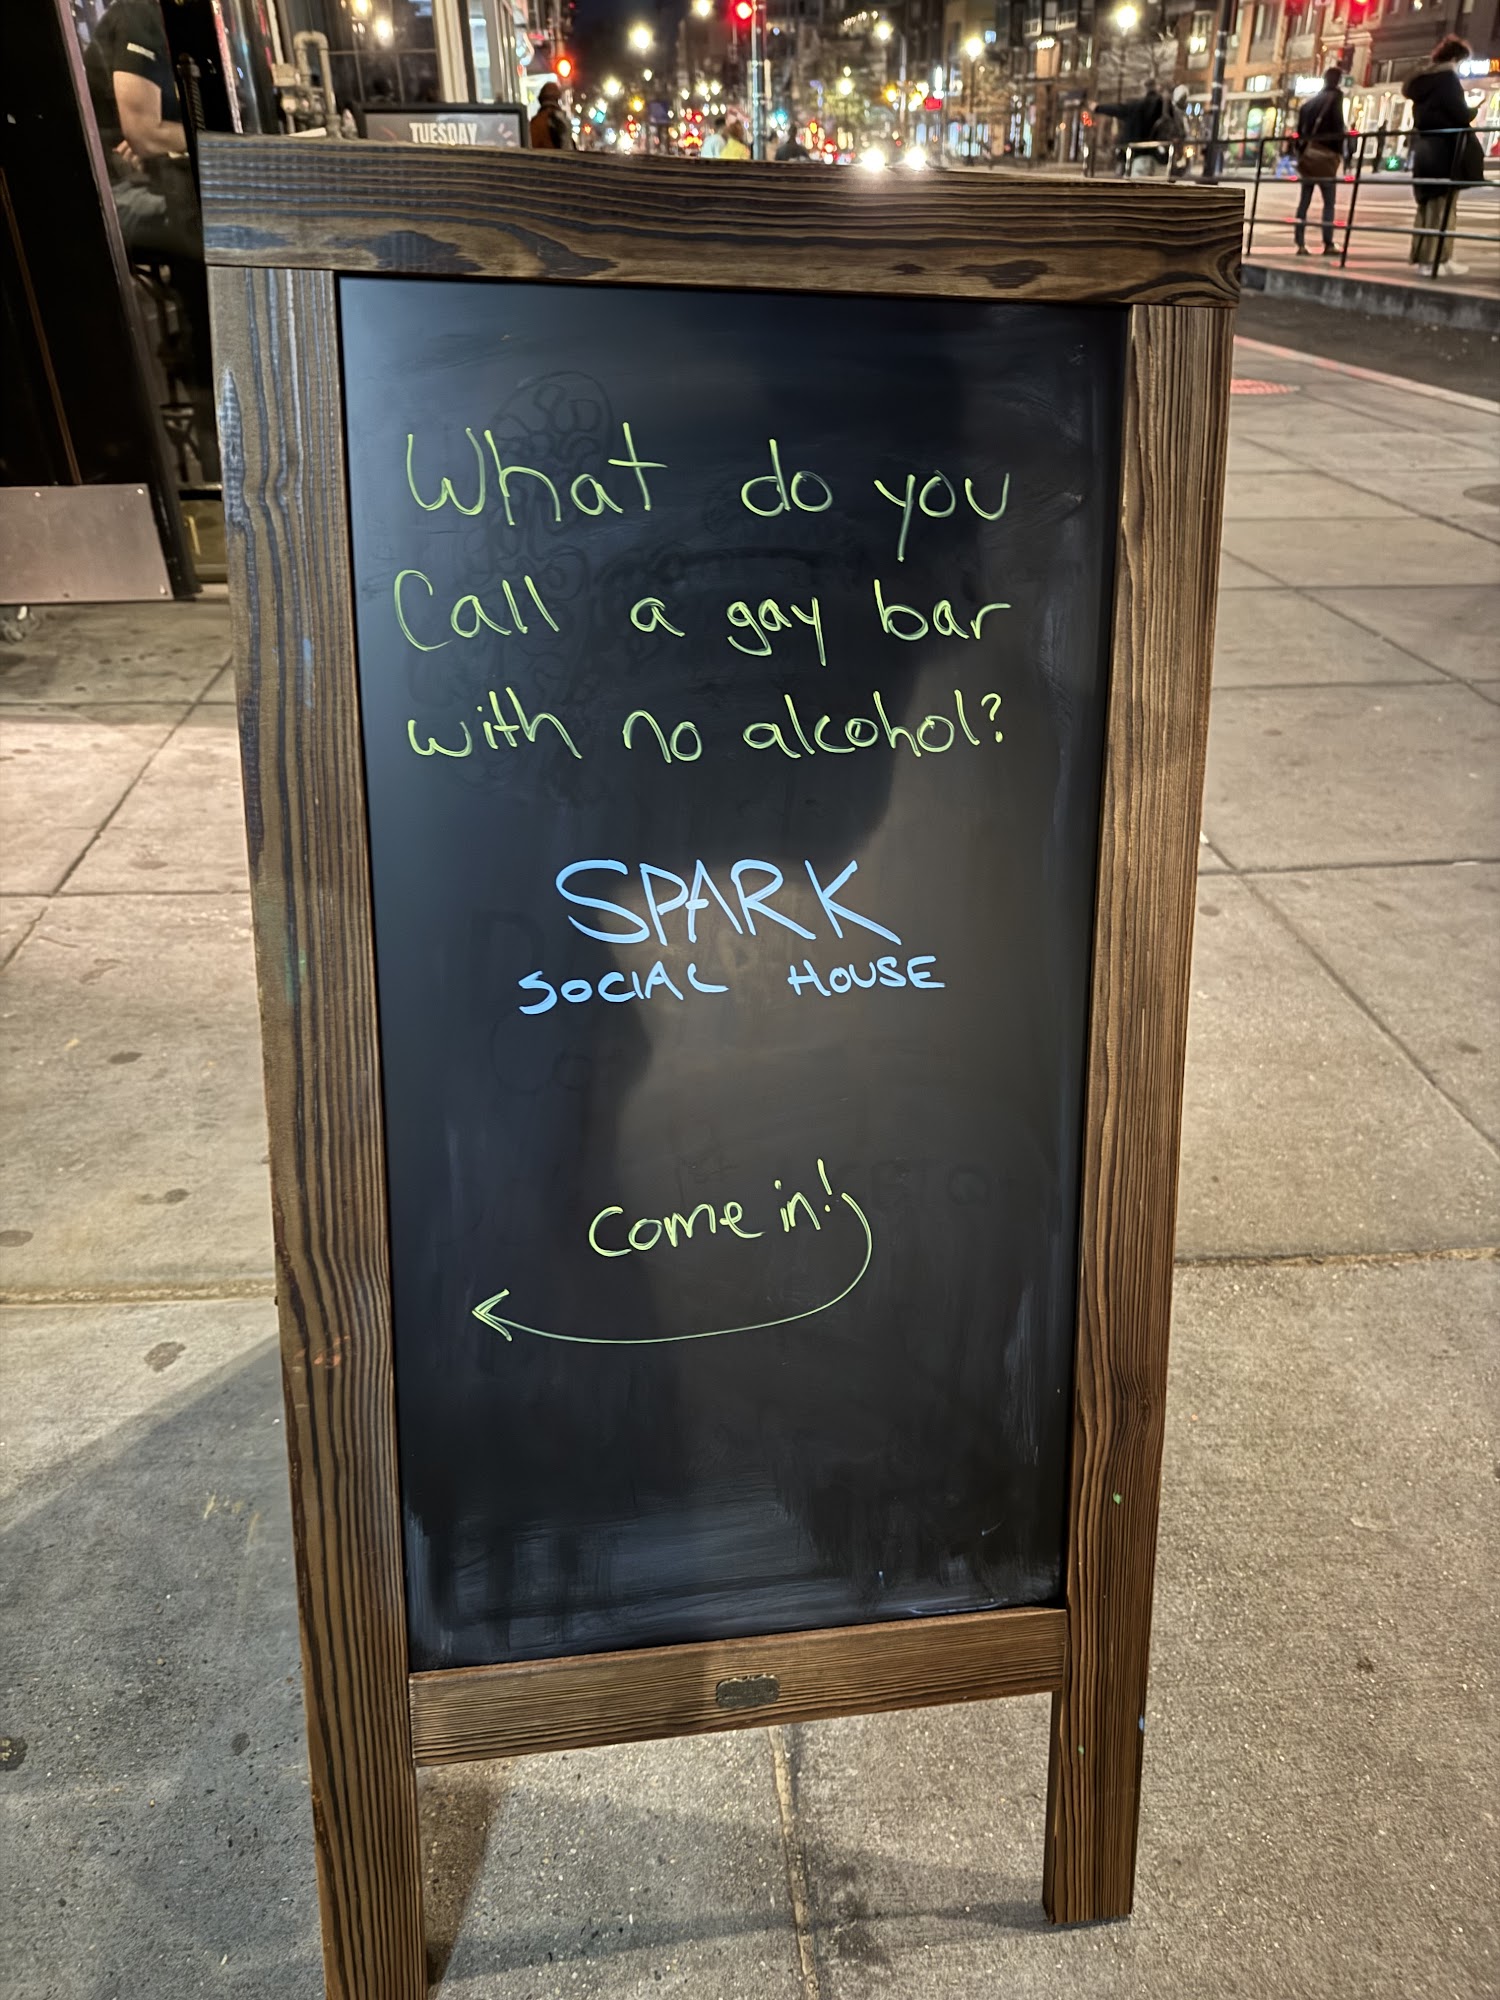 TUESDAY
What do you
Call a gay bar
with no alcohol?
SPARK
SOCIAL HOUSE
Come in!